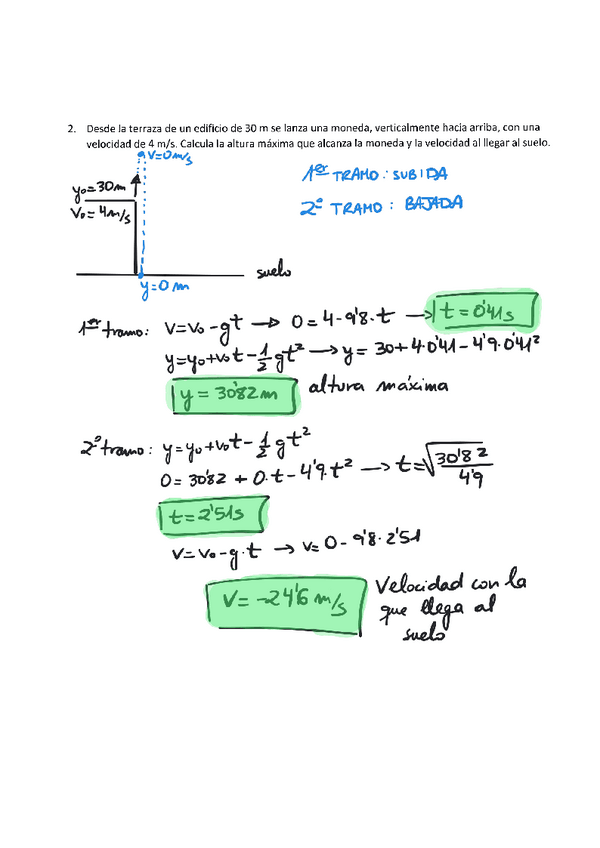 2. Desde la terraza de un edificio de 30 m se lanza una moneda, verticalmente hacia arriba, con una
velocidad de 4 m/s. Calcula la altura máxima que alcanza la moneda y la velocidad al llegar al suelo.
V=0 m/s
y₀=30m
V₀=4m/s
suelo
y=0 m
1er TRAMO: SUBIDA
2º TRAMO: BAJADA
1er tramo: V=V₀-gt → 0=4-9'8·t → t=0'41s
y=y₀+v₀t-1/2 gt² → y=30+4·0'41-4'9·0'41²
y=30'82m altura máxima
2º tramo: y=y₀+v₀t-1/2 gt²
0=30'82+0·t-4'9·t² → t=√30'82/4'9
t=2'51s
V=V₀-g·t → V=0-9'8·2'51
V=-24'6 m/s Velocidad con la
que llega al
suelo